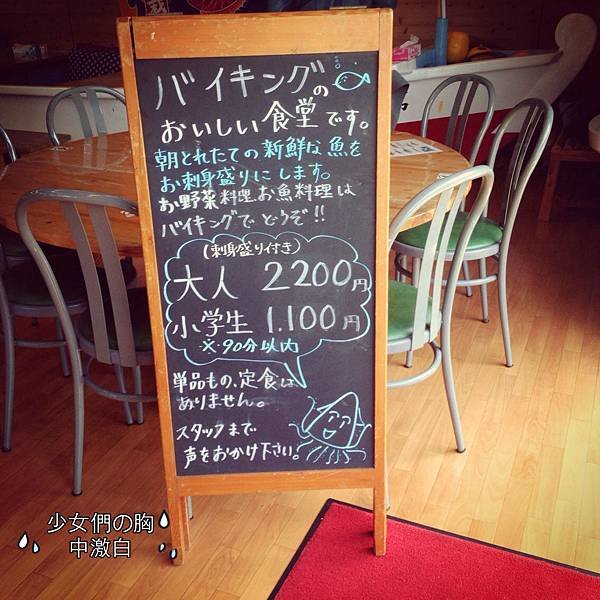 バイキングの
おいしい食堂です。
朝とれたての新鮮な魚を
お刺身盛りにします。
お野菜料理、お魚料理は
バイキングでどうぞ!!
(刺身盛り付き)
大人 2200円
小学生 1.100円
※90分以内
単品もの、定食は
ありません。
スタッフまで
声をおかけ下さい。
少女們の胸
中激白